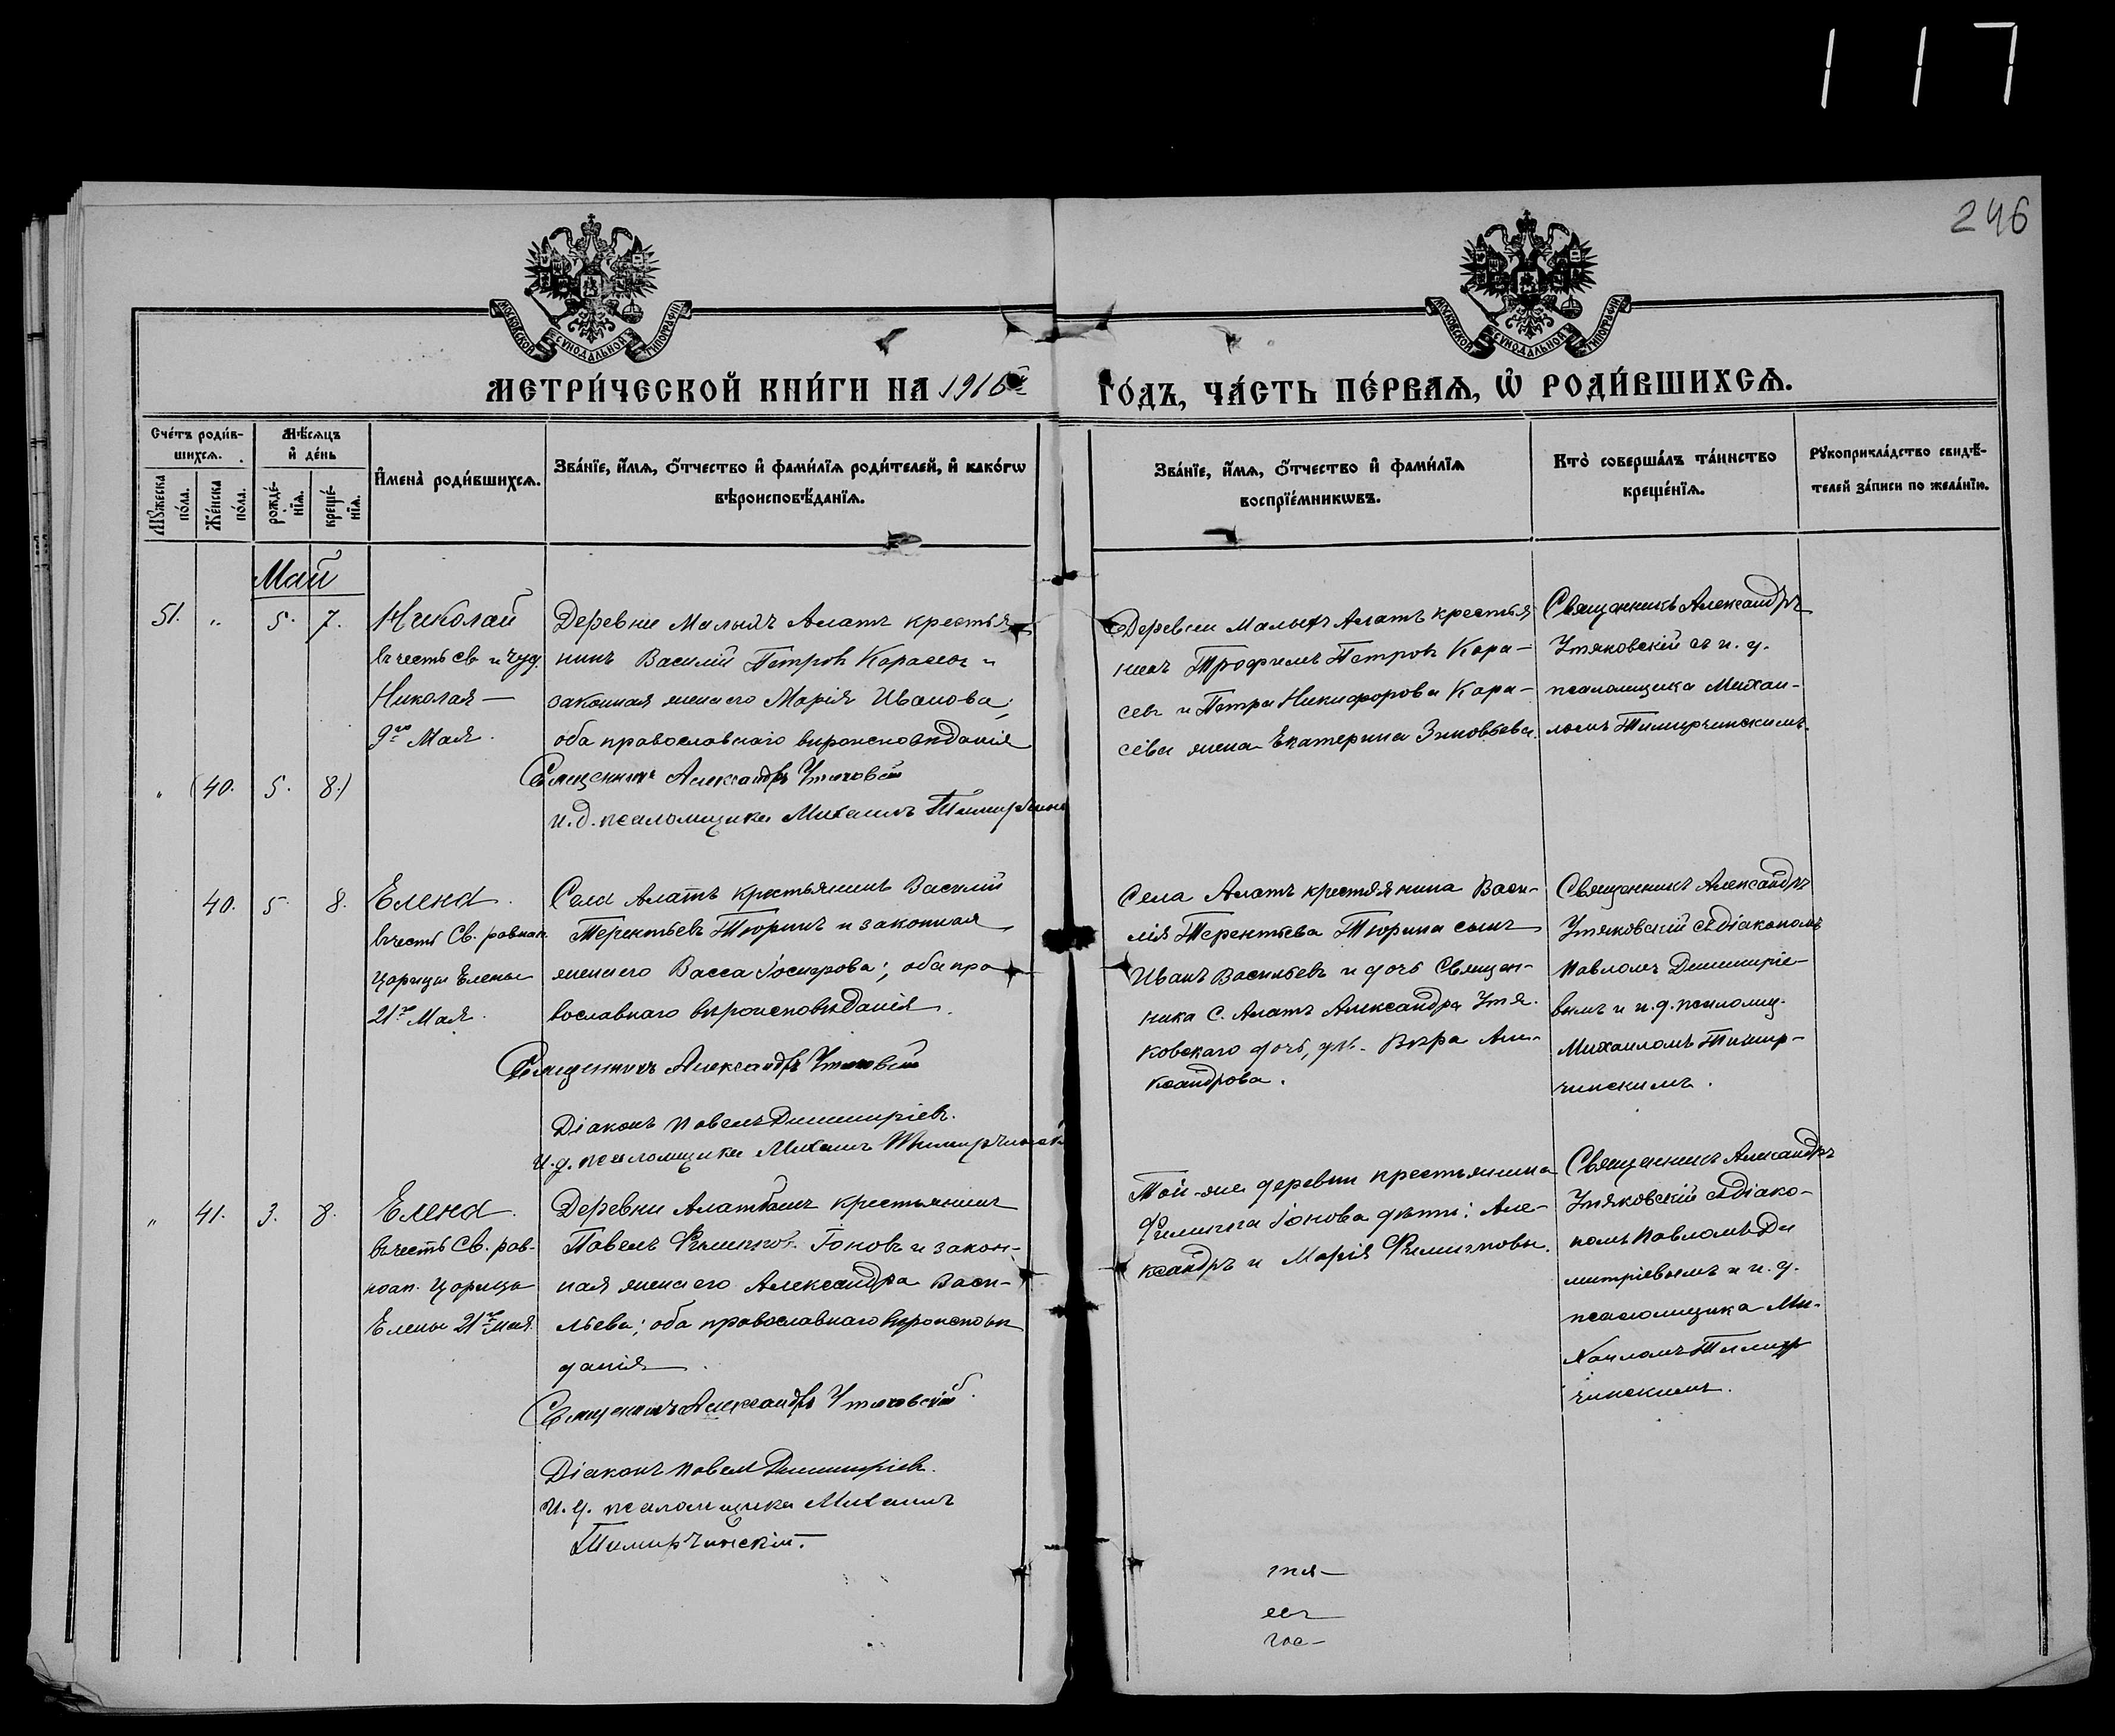 117
246
МОСКОВСКОЙ СѴНОДАЛЬНОЙ ТИПОГРАФІИ
МОСКОВСКОЙ СѴНОДАЛЬНОЙ ТИПОГРАФІИ
МЕТРИ́ЧЕСКОЙ КНИ́ГИ НА 1916й
ГО́ДЪ, ЧА́СТЬ ПЕ́РВАѦ, Ѡ РОДИ́ВШИХСѦ.
Сче́тъ роди́в-
шихсѧ.
Мꙋ́жеска по́ла.
Же́нска по́ла.
Мѣ́сѧцъ
и҆ де́нь
рожде́-
нїѧ.
креще́-
нїѧ.
И҆мена̀ роди́вшихсѧ.
Зва́нїе, и҆́мѧ, ѻ҆́тчество и҆ фами́лїѧ роди́телей, и҆ како́гѡ
вѣроисповѣ́данїѧ.
Зва́нїе, и҆́мѧ, ѻ҆́тчество и҆ фами́лїѧ
воспрїе́мникѡвъ.
Кто̀ соверша́лъ та́инство
креще́нїѧ.
Рꙋкоприкла́дство свидѣ́-
телей за́писи по жела́нїю.
Май
51. " 5. 7.
Николай
въ честь св. и чуд.
Николая —
9го Мая.
Деревни Малыхъ Алатъ крестья
нинъ Василій Петровъ Карасевъ и
законная жена его Марія Иванова;
оба православнаго вѣроисповѣданія
Священникъ Александръ Утяковскій
и.д. псаломщика Михаилъ Тимирчинс
Деревни Малыхъ Алатъ крестья
нинъ Трофимъ Петровъ Кара-
севъ и Петра Никифорова Кара-
сёва жена Екатерина Зиновьева.
Священникъ Александръ
Утяковскій съ и. д.
псаломщика Михаи-
ломъ Тимирчинскимъ.
" (40. 5. 8.)
40. 5. 8.
Елена.
въ честь Св. равноап.
Царицы Елены
21го Мая.
Села Алатъ крестьянинъ Василій
Терентьевъ Тюринъ и законная
жена его Васса Іосифова; оба пра
вославнаго вѣроисповѣданія.
Священникъ Александръ Утяковскій
Діаконъ Павелъ Димитріевъ.
И. д. псаломщика Михаилъ Тимирчинскі
Села Алатъ крестьянина Васи-
лія Терентьева Тюрина сынъ
Иванъ Васильевъ и дочь Священ-
ника с. Алатъ Александра Утя-
ковскаго дочь, дѣв. Вѣра Але-
ксандрова.
Священникъ Александръ
Утяковскій съ діакономъ
Павломъ Димитріе-
вымъ и и. д. псаломщ.
Михаиломъ Тимир-
чинскимъ.
" 41. 3. 8.
Елена.
въ честь Св. рав-
ноап. Царицы
Елены 21го мая.
Деревни крестьянинъ
Павелъ Филипповъ Іоновъ и закон-
ная жена его Александра Васи-
льева; оба православнаго вѣроисповѣ
данія.
Священникъ Александръ Утяковскій.
Діаконъ Павелъ Димитріевъ.
И. д. псаломщика Михаилъ
Тимирчинскій.
Той-же деревни крестьянина
Филиппа Іонова дѣти: Але-
ксандръ и Марія Филипповы.
Священникъ Александръ
Утяковскій съ діако-
номъ Павломъ Ди
митріевымъ и и. д.
псаломщика Ми-
хаиломъ Тимир
чинскимъ.